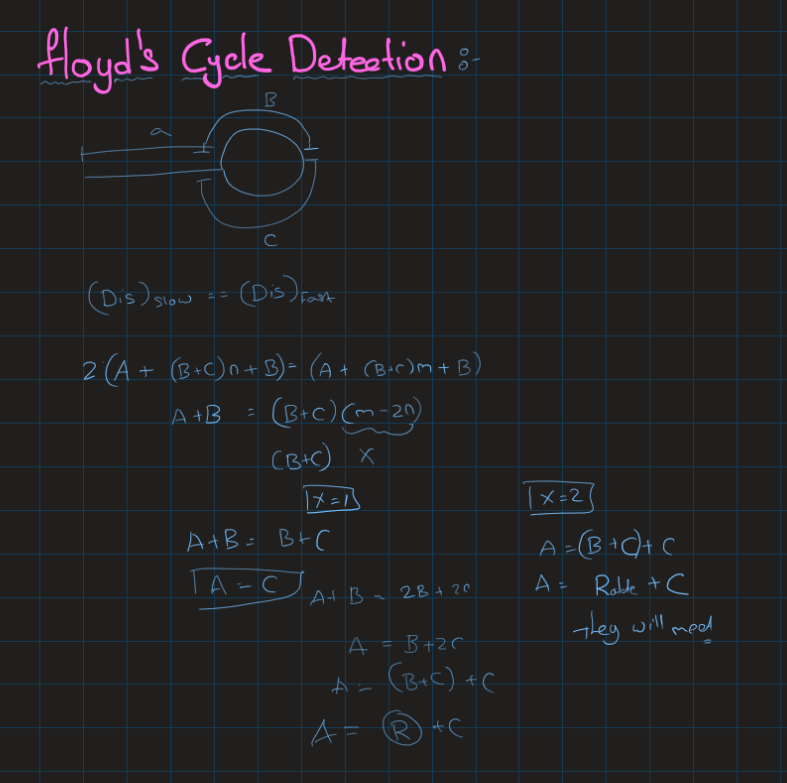 floyd's Cycle Detection :-
B
a
C
(Dis)slow == (Dis)fast
2(A + (B+C)n + B) = (A + (B+C)m + B)
A+B = (B+C)(m-2n)
(B+C) X
X=1
A+B = B+C
A = C
A+B = 2B+2C
A = B+2C
A = (B+C) + C
A = R + C
X=2
A = (B+C) + C
A = Rotate + C
They will meet